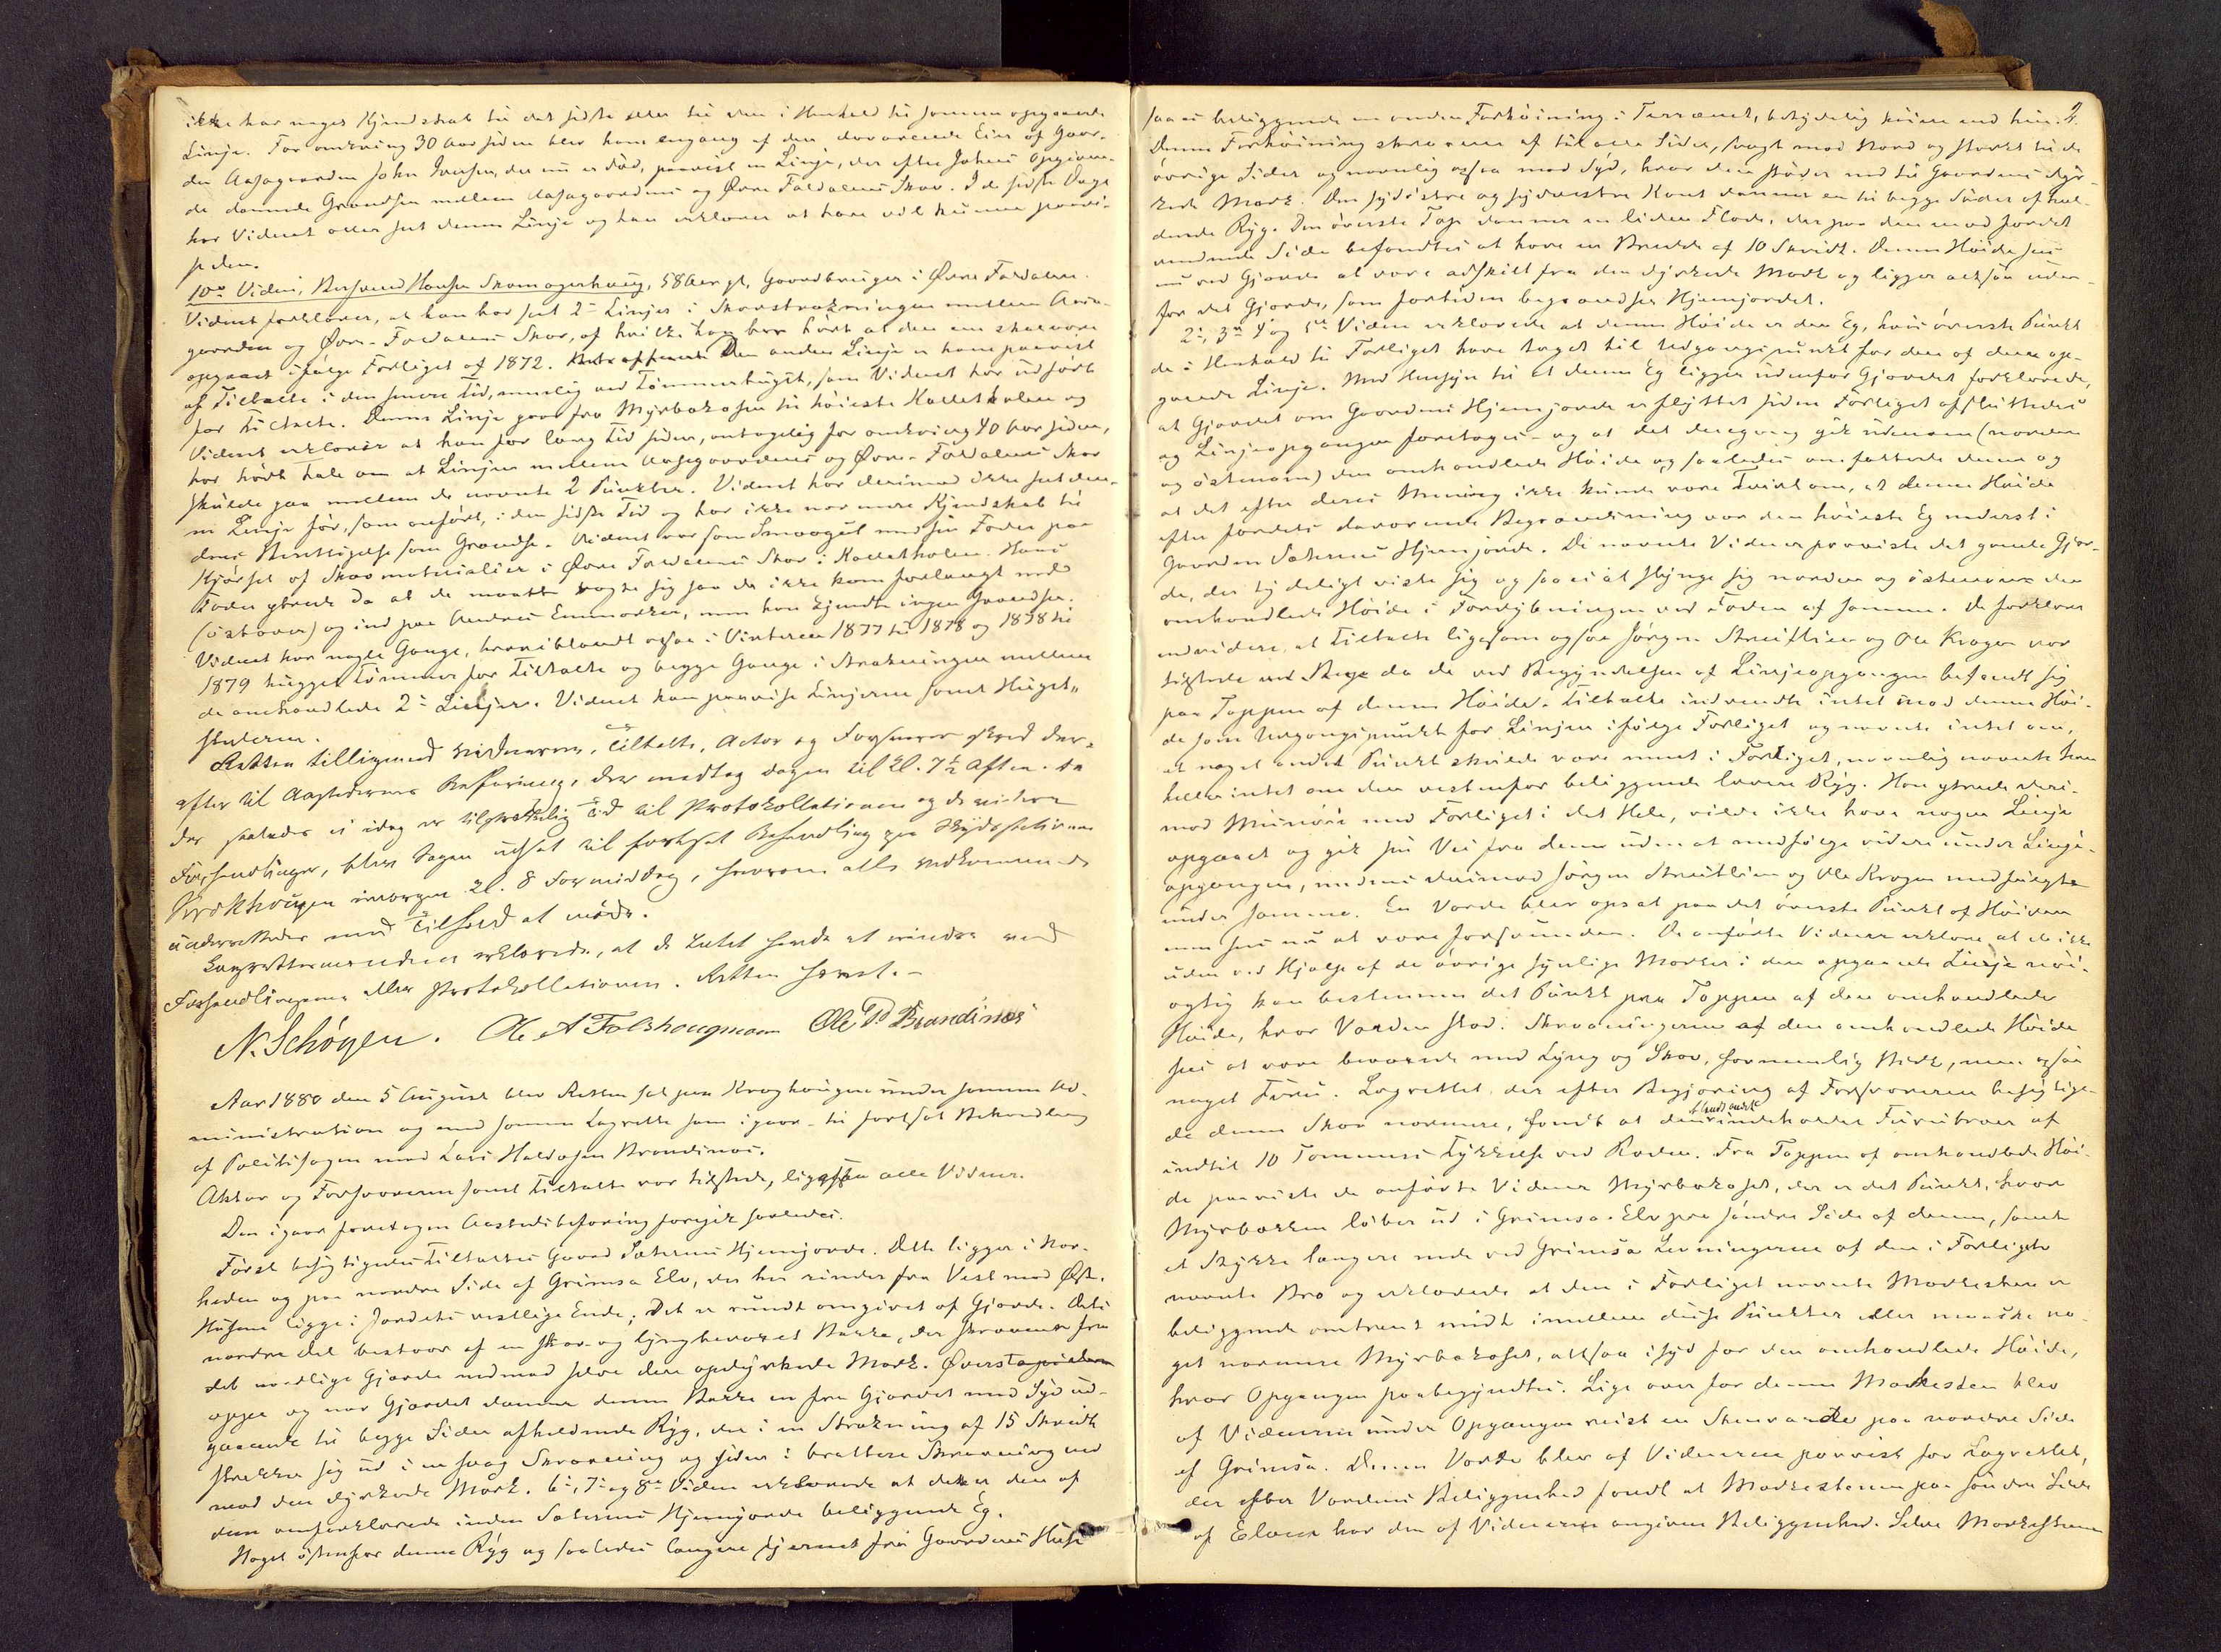 ikke har noget Kjendskab til det sidste eller til den i Henhold til samme opgaaede
Linje. For omkring 30 Aar siden blev ham engang af den davarende Eier af Gaar-
den Aasgaarden John Iversen, der nu er død, paavist en Linje, der efter Johns Opgiven-
de dannede Grændsen mellem Aasgaardens og Øvre Foldalens Skov. I de sidste Dage
har Vidnet atter seet denne Linje og han erklærer at have vel kunne paavi-
se den.
10de Vidne, Hansen Skomagerhaug, 58 Aar gl, Gaardbruger i Øvre Foldalen.
Vidnet forklarer, at han har seet 2de Linjer i Skovstrækningen mellem Aas-
gaarden og Øvre-Foldalens Skov, af hvilke han har hørt at den ene skal være
opgaaet ifølge Forliget af 1872. Den anden Linje er ham paavist
af Tiltalte i den senere Tid, nemlig ved Tømmerhugst, som Vidnet har udført
for Tiltalte. Denne Linje gaar fra Myrbækosen til høieste Kalletholen og
Vidnet erklærer at han for lang Tid siden, antagelig for omkring 40 Aar siden,
har hørt tale om at Linjen mellem Aasgaardens og Øvre-Foldalens Skov
skulde gaa mellem de nævnte 2 Punkter. Vidnet har derimod ikke seet den-
ne Linje før, som anført, i den sidste Tid og har ikke nærmere Kjendskab til
dens Berettigelse som Grændse. Vidnet var som Smaagut med sin Fader paa
Kjørsel af Skovmaterialier i Øvre Foldalens Skov i Kalletholen. Hans
Fader ytrede da at de maatte vogte sig saa de ikke kom forlangt ned
(østover) og ind paa Andres Enemærker, men han kjendte ingen Grændser.
Vidnet har nogle Gange, hvoriblandt ogsaa i Vinteren 1877 til 1878 og 1878 til
1879 hugget Tømmer for Tiltalte og begge Gange i Strækningen mellem
de omhandlede 2de Linjer. Vidnet kan paavise Linjerne samt Hugst-
stederne.
Retten tilligemed Vidnerne, Tiltalte, Aktor og Forsvarer skred der-
efter til Aastedernes Befaring, der medtog dagen til Kl. 7½ Aften. Da
der saaledes ei idag er tilstrækkelig Tid til Protokollationen og de videre
Forhandlinger, blev Sagen udsat til fortsat Behandling paa Skydsstationen
Krokhougen imorgen Kl. 8 Formiddag, hvorom alle Vedkommende
underrettedes med Tilhold at møde.
Lagrettemændene erklærede, at de Intet havde at erindre ved
Forhandlingerne eller Protokollationen. Retten hævet.-
N. Schøyen. Ole A Folshougmoen Ole P Brandsnes
Aar 1880 den 5 August blev Retten sat paa Kroghougen under samme Ad-
ministration og med samme Lagrette som igaar - til fortsat Behandling
af Politisagen mod Lars Haldosen Brandsnes.
Aktor og Forsvareren samt Tiltalte var tilstede, ligesaa alle Vidner.
Den igaar foretagne Aastedsbefaring foregik saaledes.
Først besigtigedes Tiltaltes Gaard Sæterens Hjemjorde. Dette ligger i Nær-
heden og paa nordre Side af Grimsa Elv, der her rinder fra Vest mod Øst.
Husene ligge i Jordets vestlige Ende; Det er rundt omgivet af Gjærde. Dets
nordre Del bestaar af en skov- og lyngbevoxet Bakke, der skraaner fra
det nordlige Gjærde nedmod selve den opdyrkede Mark. Øverst
oppe og nær Gjærdet danner denne Bakke en fra Gjærdet mod Syd ud-
gaaende til begge Sider afheldende Ryg, der i en Strækning af 15 Skridt
strækker sig ud i en svag Skraaning og siden i brattere Skraaning ned
mod den dyrkede Mark. 6te, 7de og 8de Vidne erklærede at dette er den af
dem omforklarede inden Sæterens Hjemjorde beliggende Eg.
Noget østenfor denne Ryg og saaledes længere fjernet fra Gaardens Huse
2.
saa er beliggende en anden Forhøining i Terrænet, betydelig høiere end hin.
Denne Forhøining skraaner af til alle Sider, svagt mod Nord og stærkt til de
øvrige Sider og navnlig ogsaa mod Syd, hvor den støder ned til Gaardens dyr-
kede Mark. Den sydøstre og sydvestre Kant danner en til begge Sider afhel-
dende Ryg. Den øverste Top danner en liden Flade, der paa den mod Jordet
vendende Side befandtes at have en Bredde af 10 Skridt. Denne Høide sees
nu ved Gjærde at være adskilt fra den dyrkede Mark og ligger altsaa uden-
for det Gjærde, som fortiden begrændser Hjemjordet.
2de, 3die 4de og 5te Vidne erklærede at denne Høide er den Eg, hvis øverste Punkt
de i Henhold til Forliget have taget til Udgangspunkt for den af dem op-
gaaede Linje. Med Hensyn til at denne Eg ligger udenfor Gjærdet forklarede,
at Gjærdet om Gaardens Hjemjorde er flyttet siden Forliget afsluttedes
og Linjeopgangen foretoges - og at det dengang gik udenom (norden
og østenom) den omhandlede Høide og saaledes omfattede denne og
at det efter deres Mening ikke kunde være Tvivl om, at denne Høide
efter Jordets davarende Begrændsning var den høieste Eg nederst i
Gaarden Sæterens Hjemjorde. De nævnte Vidner paaviste det gamle Gjær-
de, der tydeligt viste sig og saaes at slynge sig norden og østenom den
omhandlede Høide i Fordybningen ved Foden af samme. De forklarer
endvidere, at Tiltalte ligesom ogsaa Jørgen Streitlien og Ole Krogen var
tilstede ved da de ved Begyndelsen af Linjeopgangen befandt sig
paa Toppen af denne Høide. Tiltalte indvendte intet mod denne Høi-
de som Udgangspunkt for Linjen ifølge Forliget og nævnte intet om,
at noget andet Punkt skulde være ment i Forliget, navnlig nævnte han
heller intet om den vestenfor beliggende lavere Ryg. Han ytrede deri-
mod Misnøie med Forliget i det Hele, vilde ikke have nogen Linje
opgaaet og gik sin Vei fra dem uden at medfølge videre under Linje-
opgangen, medens derimod Jørgen Streitlien og Ole Krogen medfulgte
under samme. En Varde blev opsat paa det øverste Punkt af Høiden
men sees nu at være forsvunden. De anførte Vidner erklære at de ikke
uden ved Hjælp af de øvrige synlige Mærker i den opgaaede Linje nøi-
agtig kan bestemme det Punkt paa Toppen af den omhandlede
Høide, hvor Varden stod. Skraaningerne af den omhandlede Høide
sees at være bevoxede med Lyng og Skov, fornemlig Birk, men ogsaa
noget Furu. Lagrettet, der efter Begjæring af Forsvareren besigtige-
de denne Skov nærmere, fandt at den blandt andet indeholder Furutrær af
indtil 10 Tommers Tykkelse ved Roden. Fra Toppen af omhandlede Høi-
de paaviste de anførte Vidner Myrbækoset, der er det Punkt, hvor
Myrbækken løber ud i Grimsa-Elv paa søndre Side af denne, samt
et Stykke længere nede ved Grimsa Levningerne af den i Forliget
nævnte Bro og erklærede at den i Forliget nævnte Markesten er
beliggende omtrent midt imellem disse Punkter eller maaske no-
get nærmere Myrbækoset, altsaa i syd for den omhandlede Høide,
hvor Opgangen paabegyndtes. Lige over for denne Markesten blev
af Vidnerne under Opgangen reist en Stenvarde paa nordre Side
af Grimsa. Denne Varde blev af Vidnerne paavist for Lagrettet,
der efter Vardens Beliggenhed fandt at Markestenen paa søndre Side
af Elven har den af Vidnerne angivne Beliggenhed. Selve Markestenen